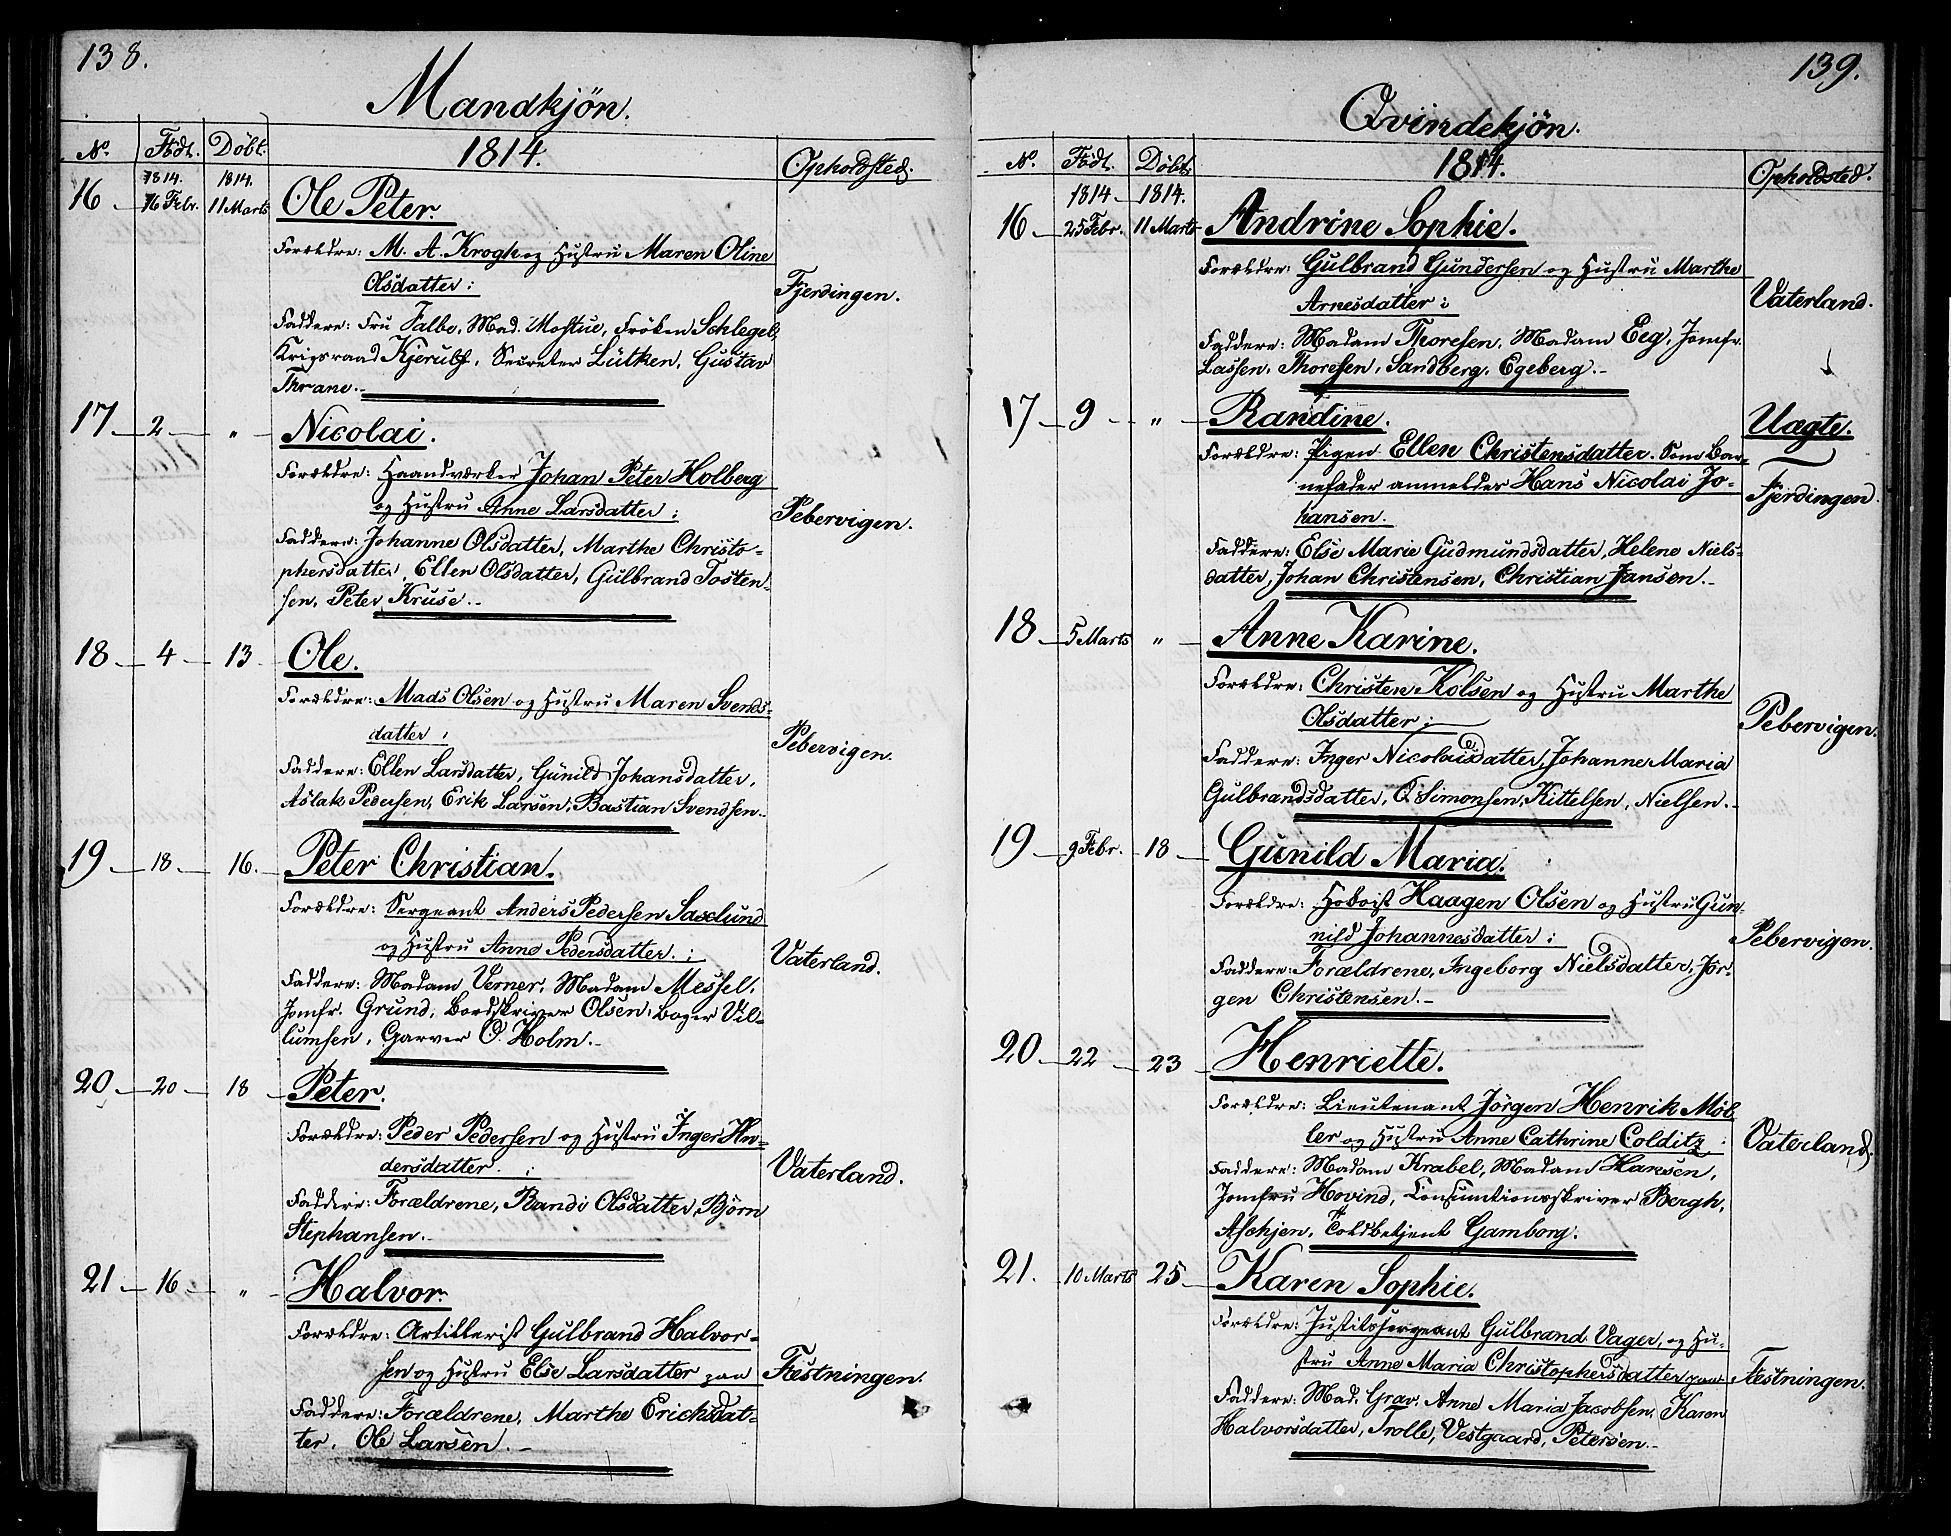 138.
Mandkjön.
No. Födt. Döbt. 1814. Opholdsted.
1814. 1814.
16 16 Febr. 11 Marts Ole Peter.
Forældre: M. A. Krogh og Hustru Maren Oline
Olsdatter:
Fjerdingen.
Faddere: Fru Falbe, Mad. Mostue, Fröken Schlegel,
Krigsraad Kjerulf, Secreter Lütken, Gustav
Thrane.-
17 2 " Nicolai.
Forældre: Haandværker Johan Peter Holberg
og Hustru Anne Larsdatter:
Pebervigen.
Faddere: Johanne Olsdatter, Marthe Christo-
phersdatter, Ellen Olsdatter, Gulbrand Tosten-
sen, Peter Kruse.-
18 4 13 Ole.
Forældre: Mads Olsen og Hustru Maren Svends-
datter:
Pebervigen.
Faddere: Ellen Larsdatter, Gunild Johansdatter,
Aslak Pedersen, Erik Larsen, Bastian Svendsen.-
19 18 16. Peter Christian.
Forældre: Sergeant Anders Pedersen Saxlund
og Hustru Anne Pedersdatter.:
Vaterland.
Faddere: Madam Verner, Madam Messel,
Jomfr. Grund, Bordskriver Olsen, Bager Vil-
lumsen, Garver O. Holm.-
20 20 18 Peter.
Forældre: Peder Pedersen og Hustru Inger An-
dersdatter.:
Vaterland.
Faddere: Forældrene, Randi Olsdatter, Björn
Stephansen.-
21 16 " Halvor.
Forældre: Artillerist Gulbrand Halvor-
sen og Hustru Else Larsdatter paa
Fæstningen.
Faddere: Forældrene, Marthe Ericksdat-
ter, Ole Larsen.-
139.
Qvindekjön.
No. Födt. Döbt. 1814. Opholdsted.
1814. 1814.
16 25 Febr. 11 Marts Andrine Sophie.
Forældre: Gulbrand Gundersen og Hustru Marthe
Arnesdatter:
Vaterland.
Faddere: Madam Thoresen, Madam Eeg, Jomfr.
Lassen, Thoresen, Sandberg, Egeberg.-
17 9 " Randine. Uægte.
Forældre: Pigen Ellen Christensdatter. Som Bar-
nefader anmelder Hans Nicolai Jo-
hansen.
Fjerdingen.
Faddere: Else Marie Gudmundsdatter, Helene Niels-
datter, Johan Christensen, Christian Jansen.-
18 5 Marts " Anne Karine.
Forældre: Christen Kolsen og Hustru Marthe
Olsdatter:
Pebervigen.
Faddere: Inger Nicolaisdatter, Johanne Maria
Gulbrandsdatter, O. Simonsen, Kittelsen, Nielsen.-
19 9 Febr. 18 Gunild Maria.
Forældre: Hoboist Haagen Olsen og Hustru Gun-
nild Johannesdatter:
Pebervigen.
Faddere: Forældrene, Ingeborg Nielsdatter, Jör-
gen Christensen.-
20 22 23 Henriette.
Forældre: Lieutenant Jörgen Henrik Möl-
ler og Hustru Anne Cathrine Colditz:
Vaterland.
Faddere: Madam Krabel, Madam Hansen,
Jomfru Hovind, Consumtionsskriver Bergh,
Askjen, Toldbetjent Gamborg.
21. 10 Marts 25 Karen Sophie.
Forældre: Justitssergeant Gulbrand Vager, og Hu-
stru Anne Maria Christophersdatter paa
Fæstningen.
Faddere: Mad. Grav. Anne Maria Jacobsen, Karen
Halvorsdatter, Trolle, Vestgaard, Petersen.-